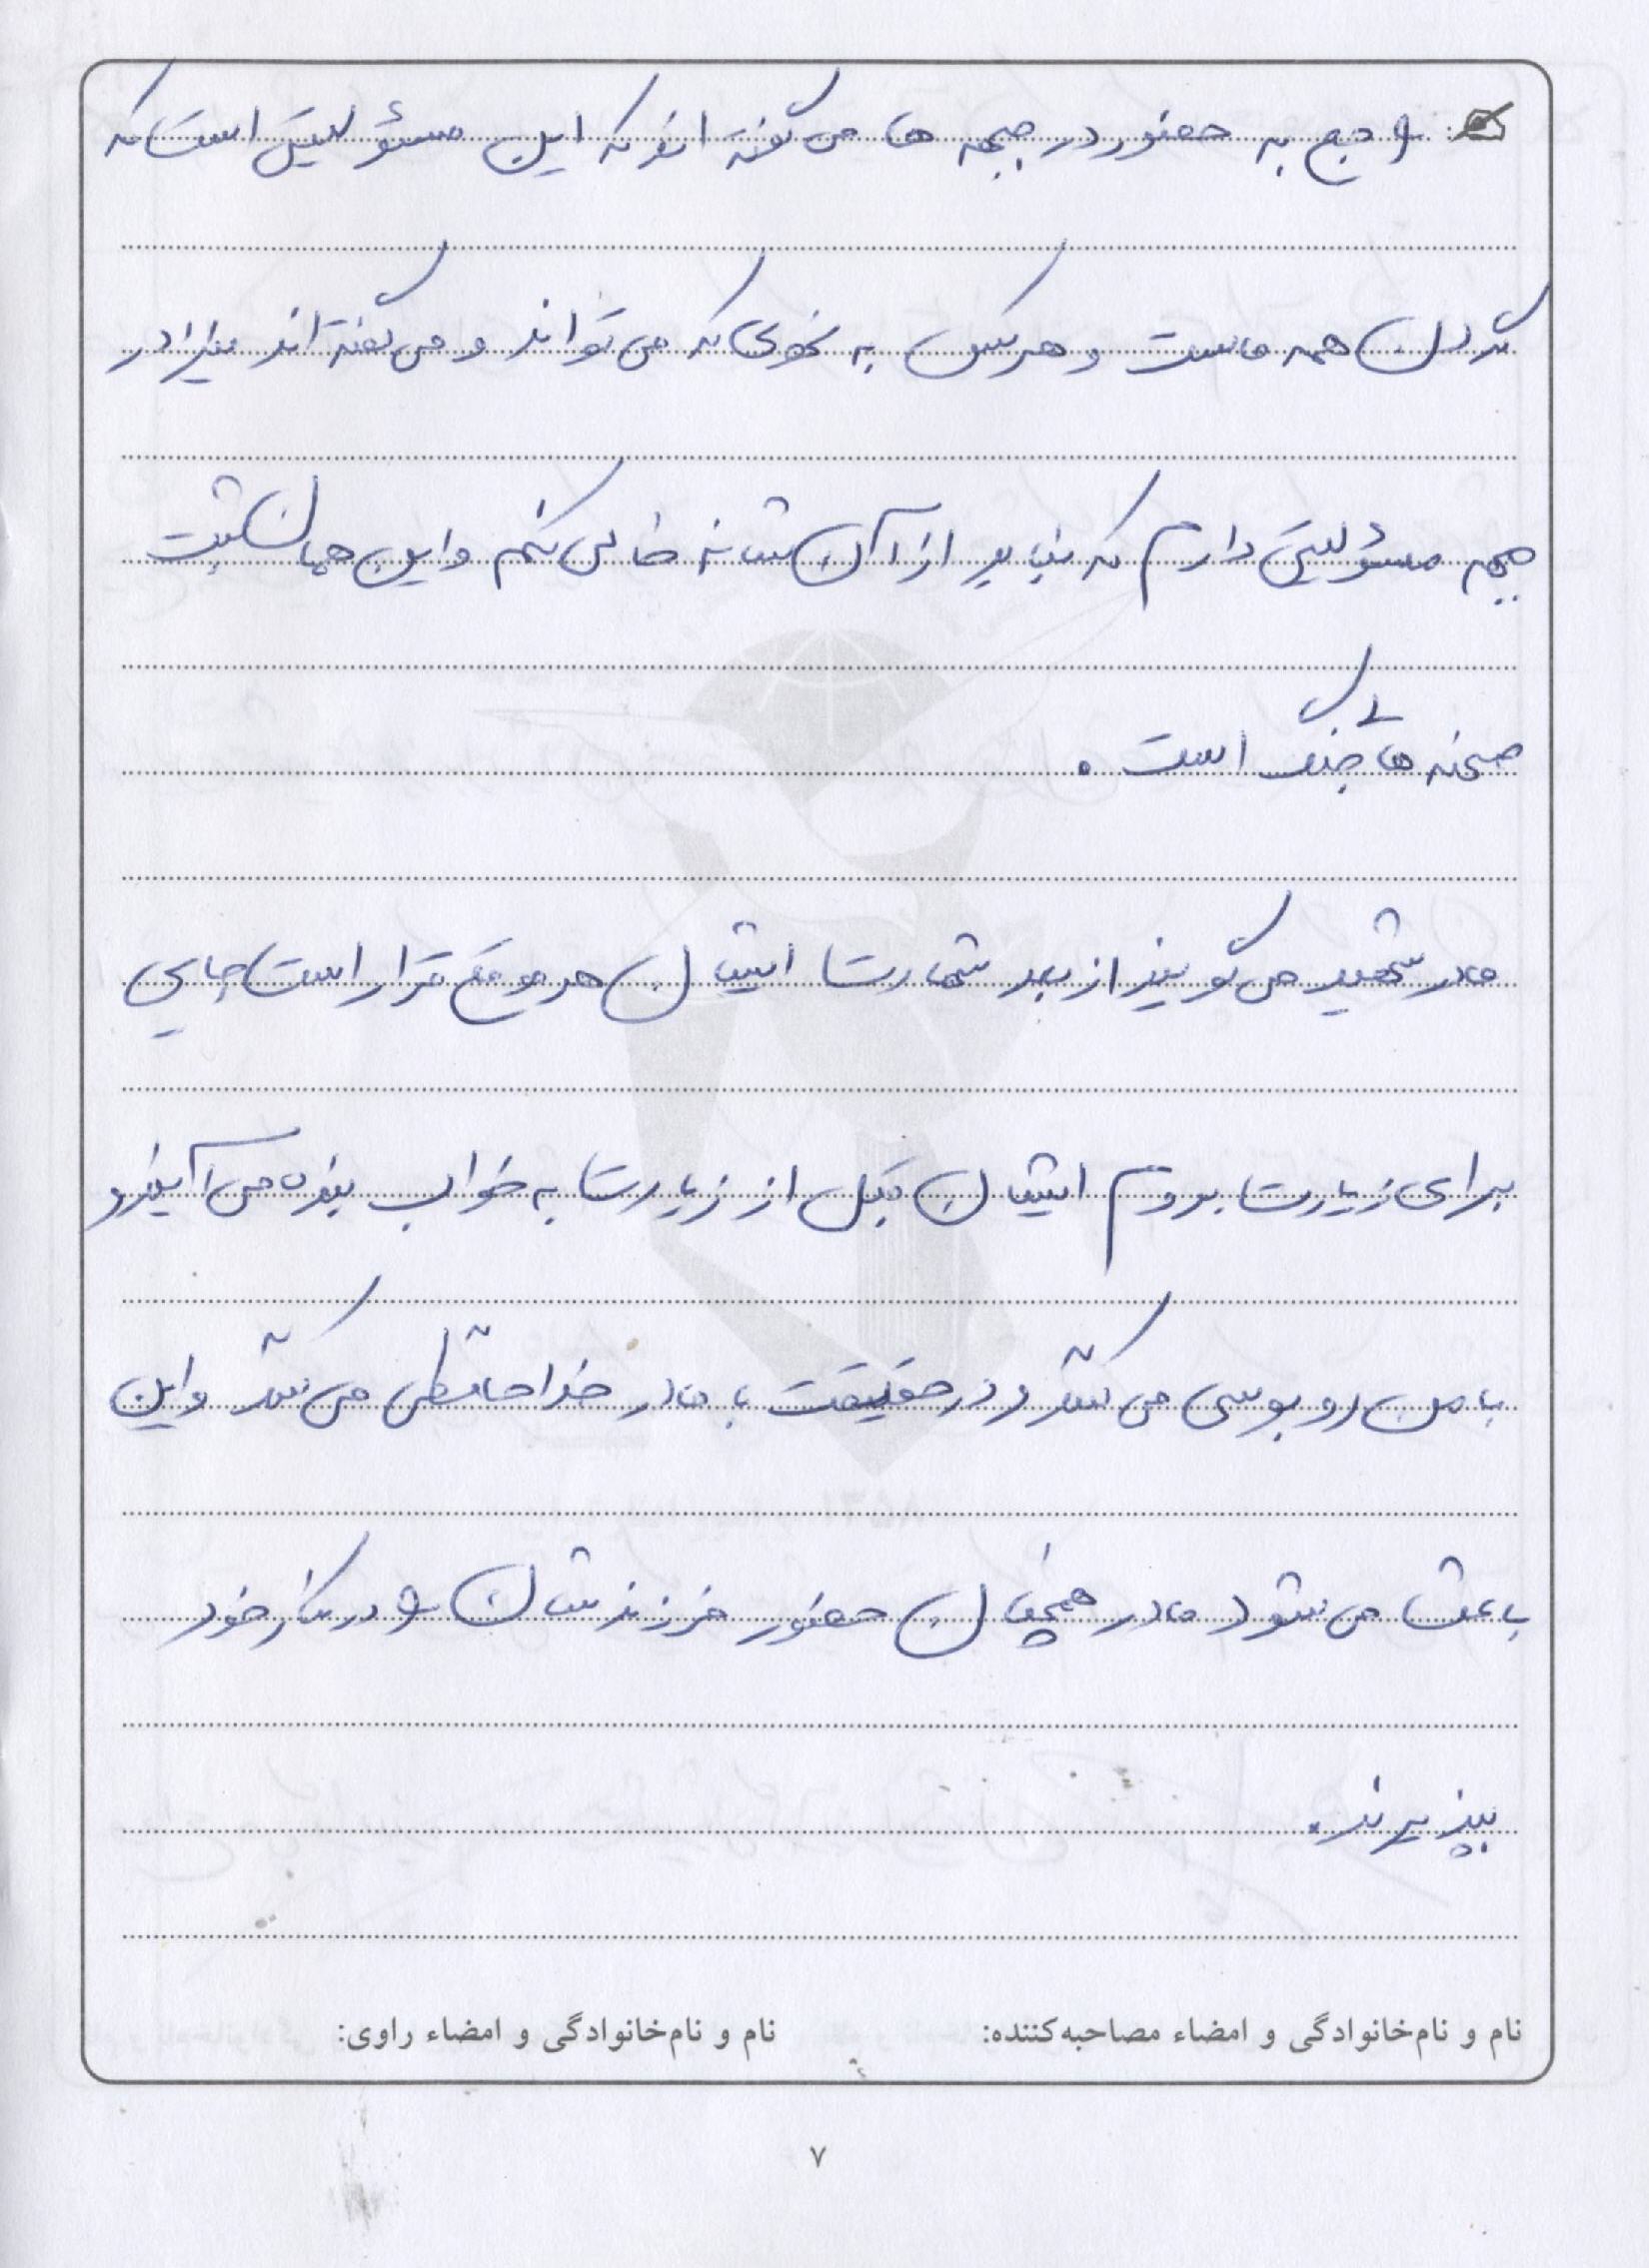 راجع به حضور در جبهه ها می گفته اند که این مسئولیتی است که
گردن همه ماست و هرکس به نحوی که می تواند و می گفته اند من در
جبهه مسئولیتی دارم که نباید از آن شانه خالی کنم و این همان ثبت
صحنه های جنگ است .
مادر شهید می گویند از بعد شهادت ایشان هر موقع قرار است جایی
برای زیارت بروم ایشان قبل از زیارت به خواب بنده می آیند و
با من روبوسی می کند و در حقیقت با مادر خداحافظی می کند و این
باعث می شود مادر همچنان حضور فرزندشان را در کنار خود
بپذیرند .
نام و نام‌خانوادگی و امضاء مصاحبه‌کننده: نام و نام‌خانوادگی و امضاء راوی:
۷